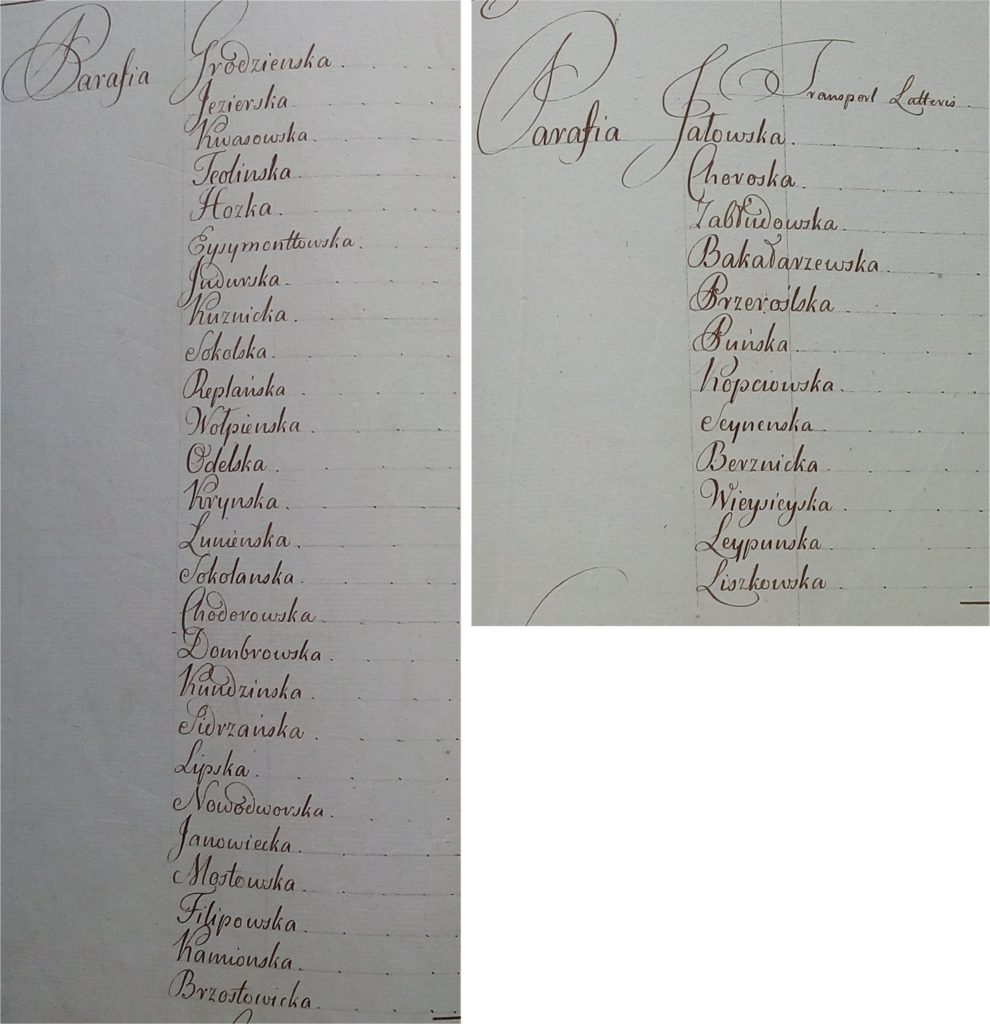 Parafia Grodzienska
Jezierska
Kwasowska
Teolinska
Hozka
Eysymonttowska
Judurska
Kuznicka
Sokolska
Replańska
Wołpienska
Odelska
Krynska
Lunienska
Sokolanska
Chodorowska
Dombrowska
Kundzinska
Sidrzańska
Lipska
Nowodworska
Janowiecka
Mostowska
Filipowska
Kamionska
Brzostowicka
Transport Latteris
Parafia Jałowska
Choroska
Zabłudowska
Bakałarzewska
Przeroślska
Puńska
Kopciowska
Seynenska
Berznicka
Wieysieyska
Leypunska
Liszkowska